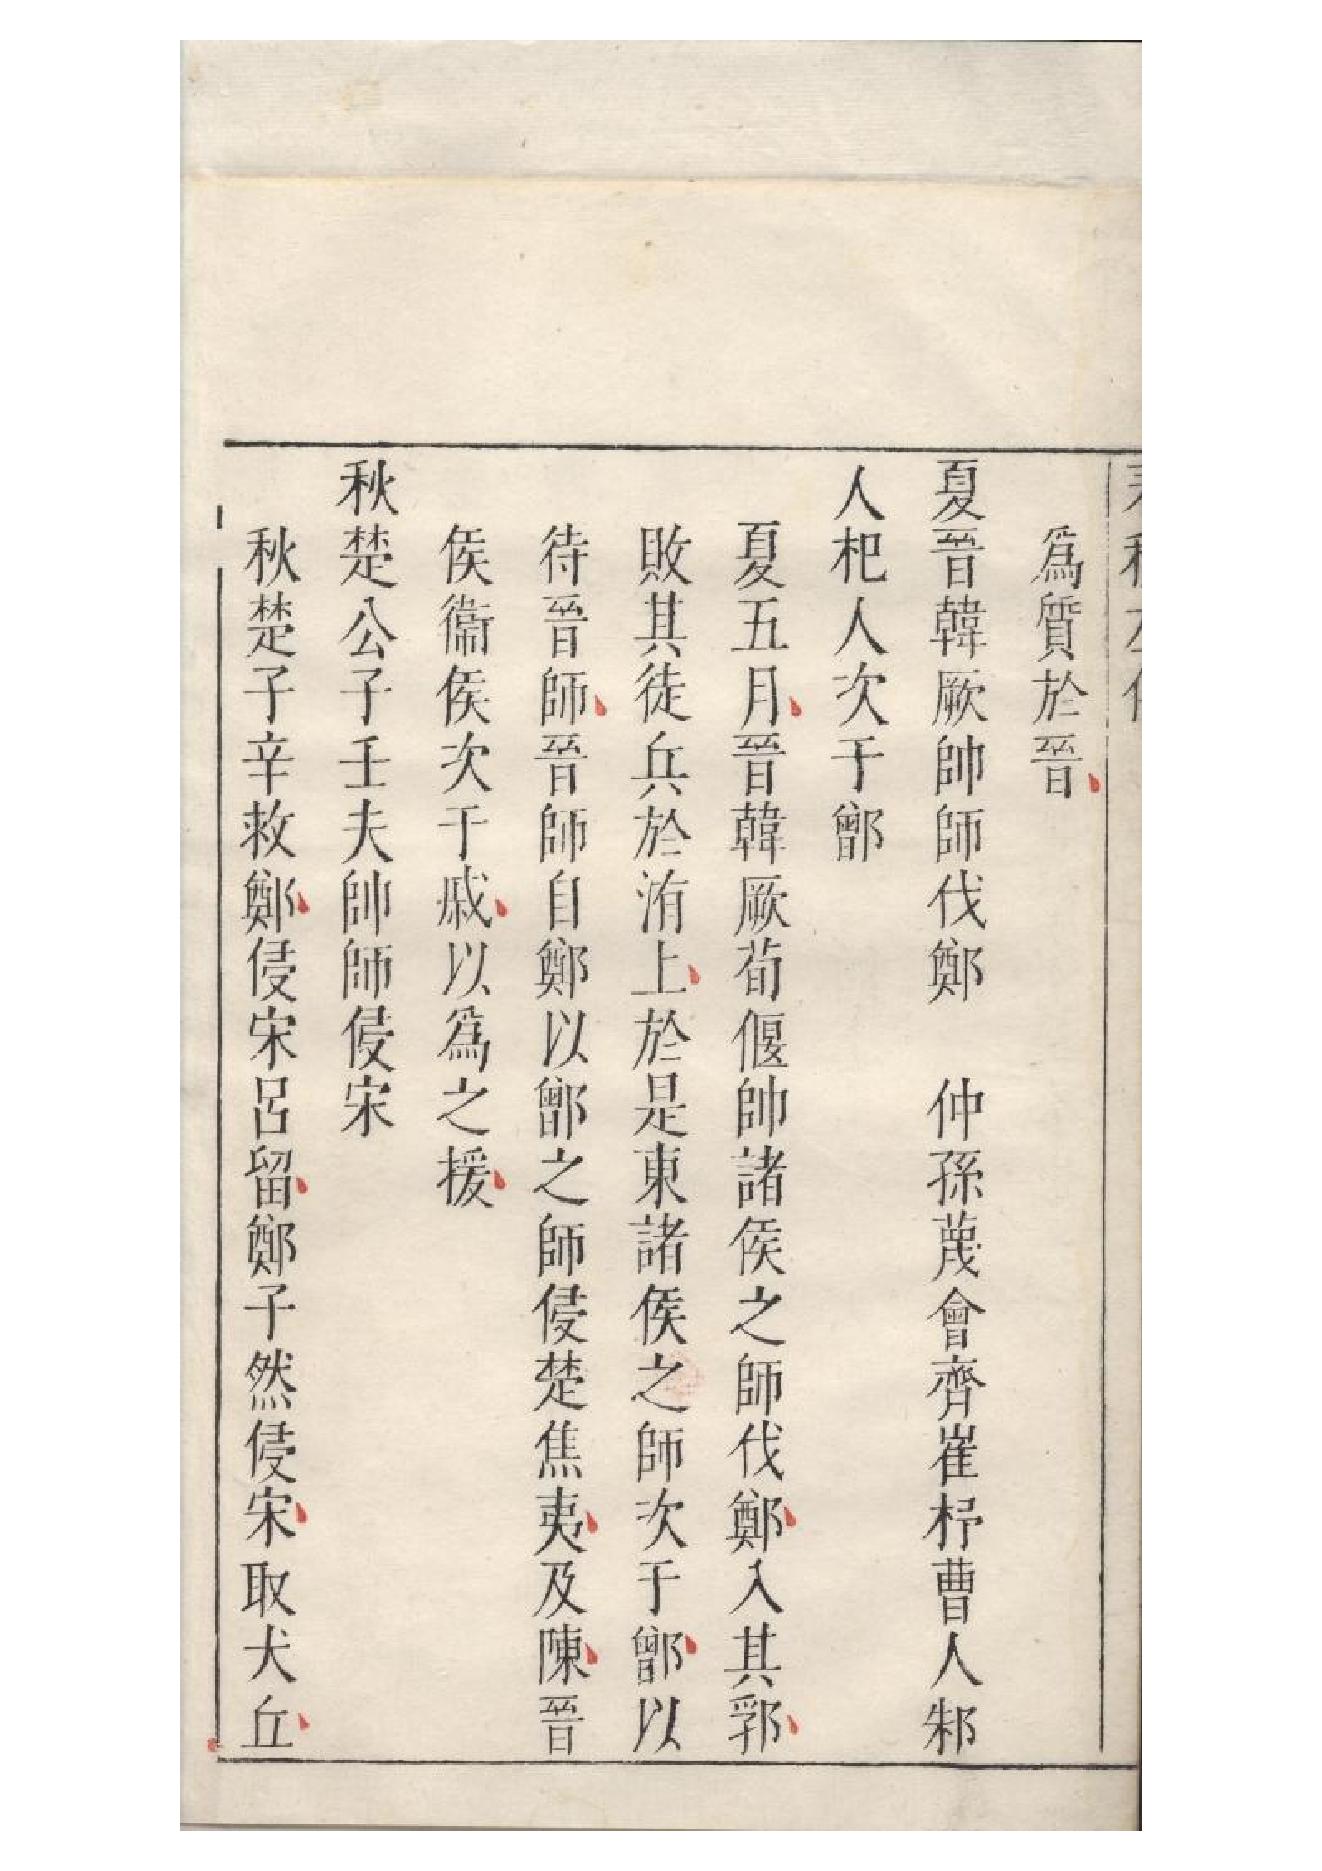 爲質於晉
夏晉韓厥帥師伐鄭　仲孫蔑會齊崔杼曹人邾
人杞人次于鄫
夏五月晉韓厥荀偃帥諸侯之師伐鄭入其郛
敗其徒兵於洧上於是東諸侯之師次于鄫以
待晉師晉師自鄭以鄫之師侵楚焦夷及陳晉
侯衞侯次于戚以爲之援
秋楚公子壬夫帥師侵宋
秋楚子辛救鄭侵宋呂留鄭子然侵宋取犬丘